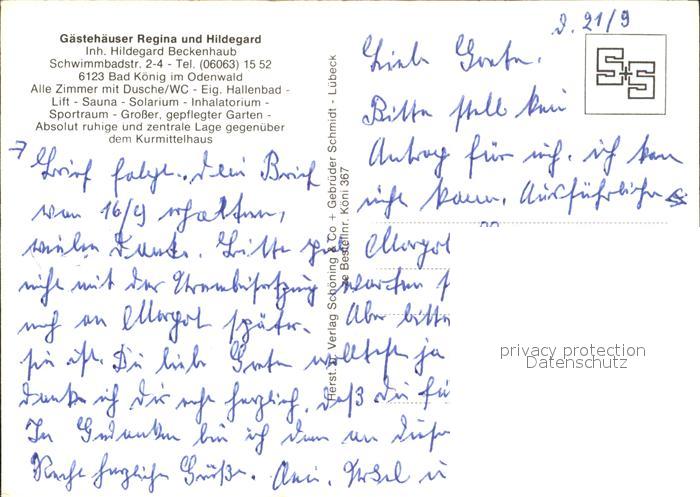 Gästehäuser Regina und Hildegard
Inh. Hildegard Beckenhaub
Schwimmbadstr. 2-4 - Tel. (06063) 15 52
6123 Bad König im Odenwald
Alle Zimmer mit Dusche/WC - Eig. Hallenbad -
Lift - Sauna - Solarium - Inhalatorium -
Sportraum - Großer, gepflegter Garten -
Absolut ruhige und zentrale Lage gegenüber
dem Kurmittelhaus
Brief folgt. Dein Brief
vom 16/9 erhalten,
vielen Dank. Bitte
nicht mit der
noch an Margot später.
sie ist. Du liebe Greta wolltest ja
danke ich Dir recht herzlich, daß Du fü
In Gedanken bin ich dann an diese
Recht herzliche Grüße.
Herst. u. Verlag Schöning & Co + Gebrüder Schmidt - Lübeck
Bestellnr. Köni 367
d. 21/9
S+S
Liebe Greta.
Bitte stell kein
Antrag für mich. ich kan
nicht kann. Ausführlicher
Margot
warten
Aber bitte
privacy protection
Datenschutz